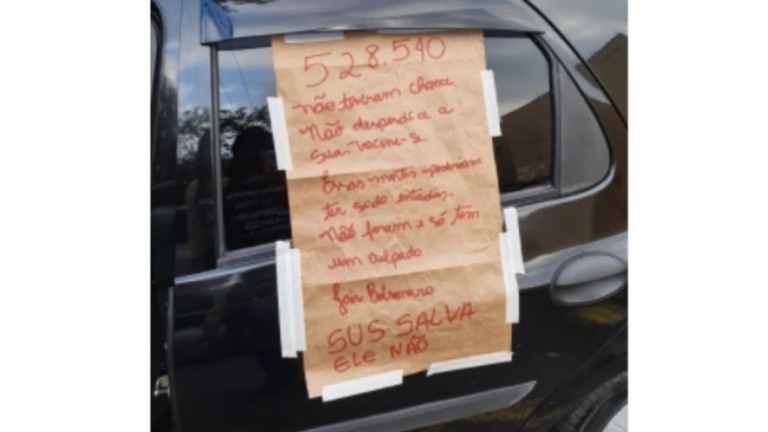 528.540
não tiveram chance
Não desperdice a
sua. Vacine-se.
Essas mortes poderiam
ter sido evitadas.
Não foram e só tem
um culpado
Jair Bolsonaro
SUS SALVA
ELE NÃO